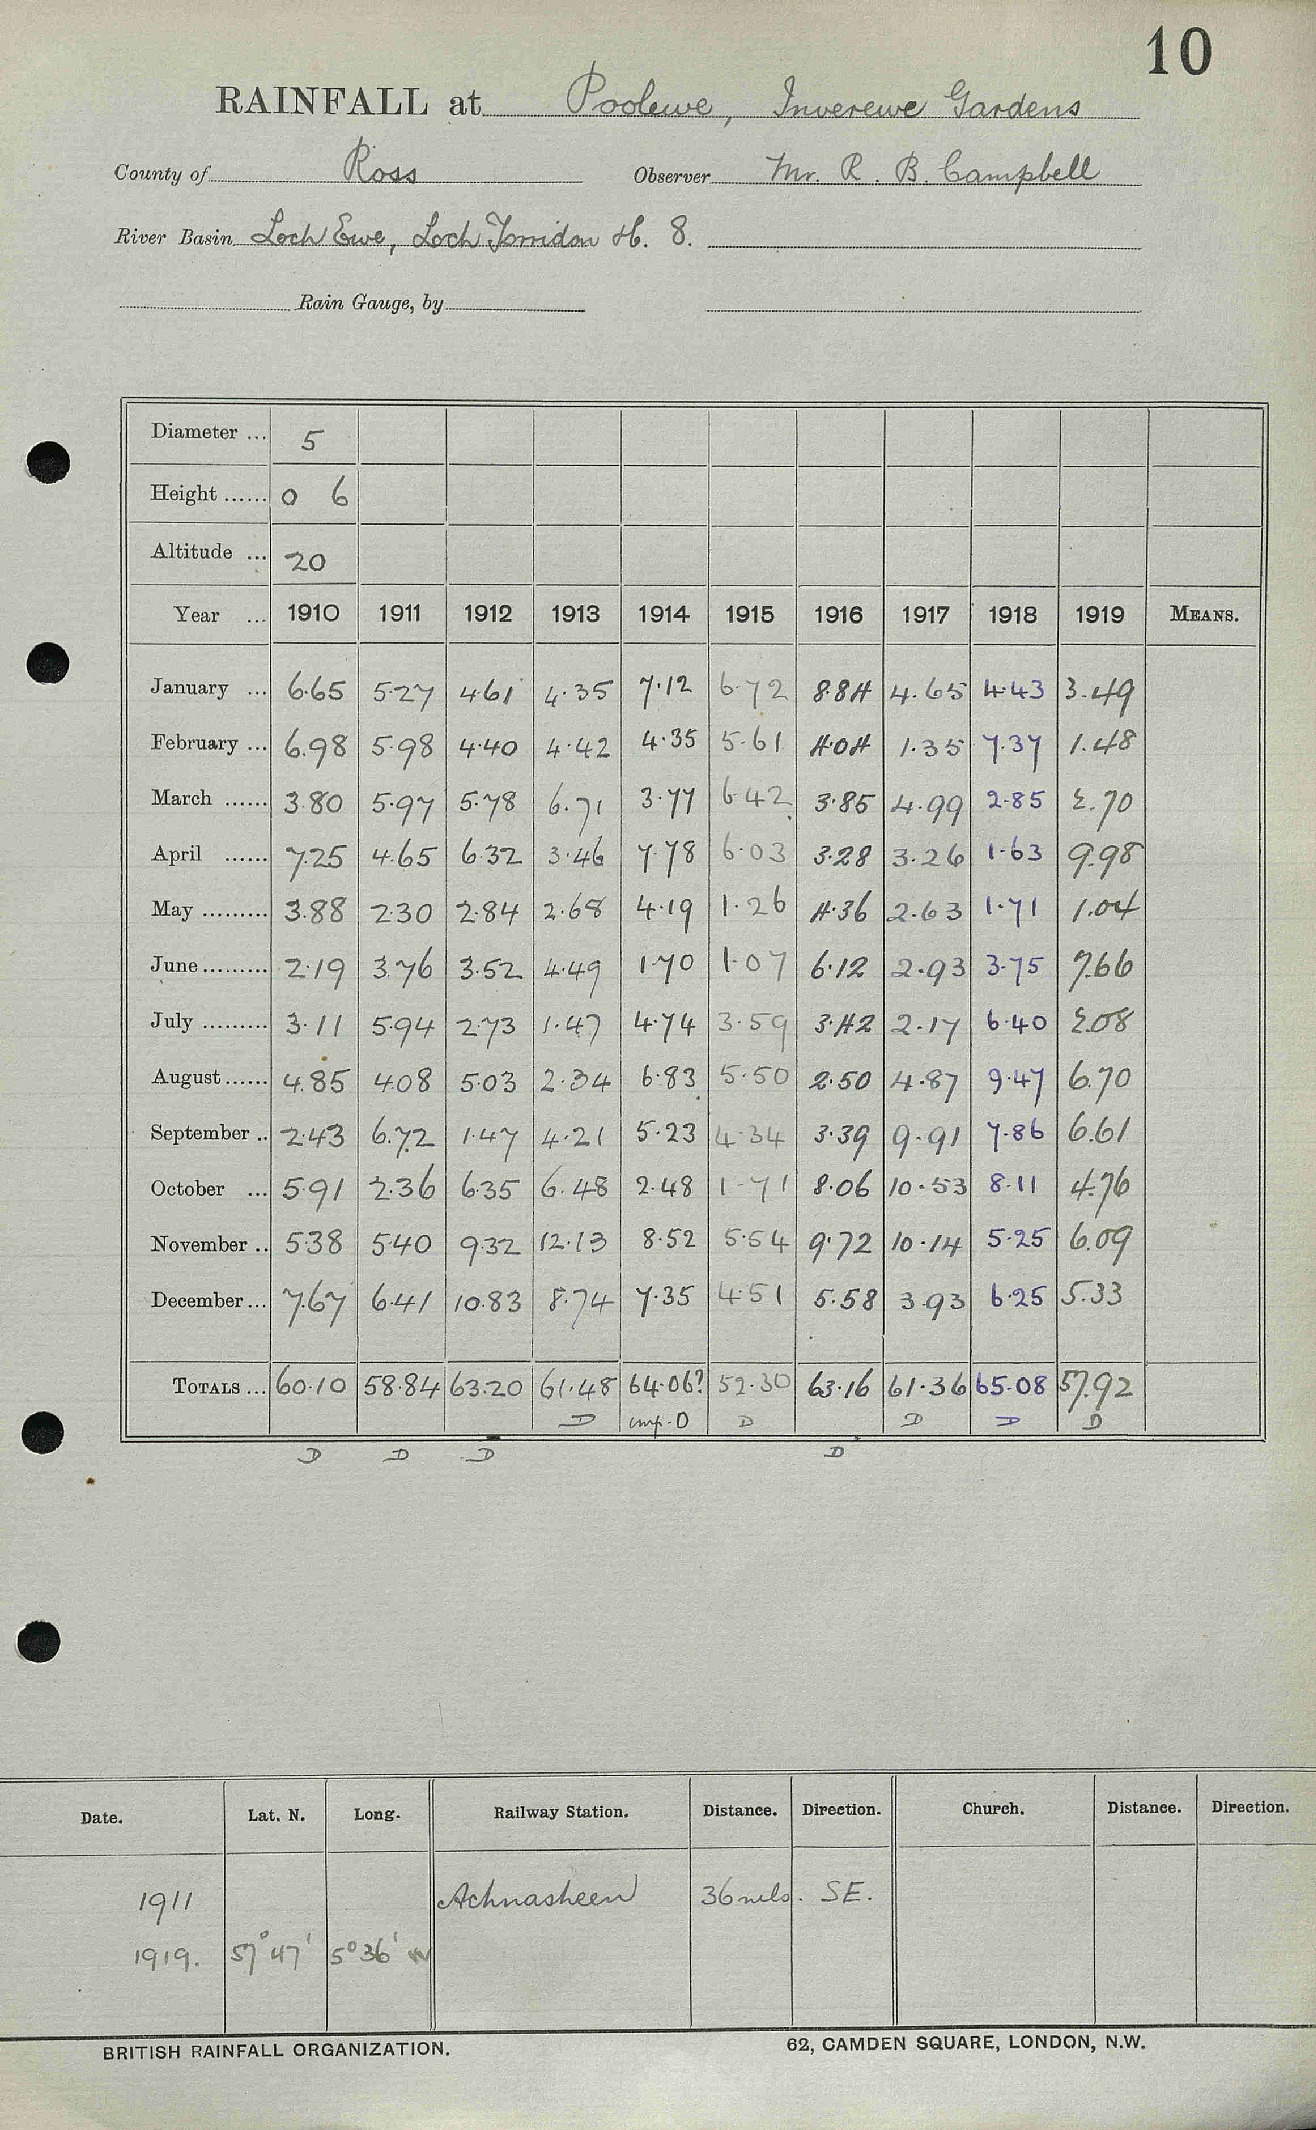 10
RAINFALL at Poolewe, Inverewe Gardens
County of Ross Observer Mr. R. B. Campbell
River Basin Loch Ewe, Loch Torridon H. 8.
Rain Gauge, by
Diameter ... 5
Height ...... 0 6
Altitude ... 20
Year ... 1910 1911 1912 1913 1914 1915 1916 1917 1918 1919 MEANS.
January ... 6.65 5.27 4.61 4.35 7.12 6.72 8.84 4.65 4.43 3.49
February ... 6.98 5.98 4.40 4.42 4.35 5.61 4.04 1.35 7.37 1.48
March ...... 3.80 5.97 5.78 6.71 3.77 6.42 3.85 4.99 2.85 2.70
April ...... 7.25 4.65 6.32 3.46 7.78 6.03 3.28 3.26 1.63 9.98
May ......... 3.88 2.30 2.84 2.68 4.19 1.26 4.36 2.63 1.71 1.04
June ......... 2.19 3.76 3.52 4.49 1.70 1.07 6.12 2.93 3.75 7.66
July ......... 3.11 5.94 2.73 1.47 4.74 3.59 3.42 2.17 6.40 2.08
August ...... 4.85 4.08 5.03 2.34 6.83 5.50 2.50 4.87 9.47 6.70
September .. 2.43 6.72 1.47 4.21 5.23 4.34 3.39 9.91 7.86 6.61
October ... 5.91 2.36 6.35 6.48 2.48 1.71 8.06 10.53 8.11 4.76
November .. 5.38 5.40 9.32 12.13 8.52 5.54 9.72 10.14 5.25 6.09
December ... 7.67 6.41 10.83 8.74 7.35 4.51 5.58 3.93 6.25 5.33
TOTALS ... 60.10 58.84 63.20 61.48 64.06? 52.30 63.16 61.36 65.08 57.92
D D D D D D
D D D D
Date. Lat. N. Long. Railway Station. Distance. Direction. Church. Distance. Direction.
1911 Achnasheen 36 mls. SE.
1919. 57° 47' 5° 36' W
BRITISH RAINFALL ORGANIZATION. 62, CAMDEN SQUARE, LONDON, N.W.